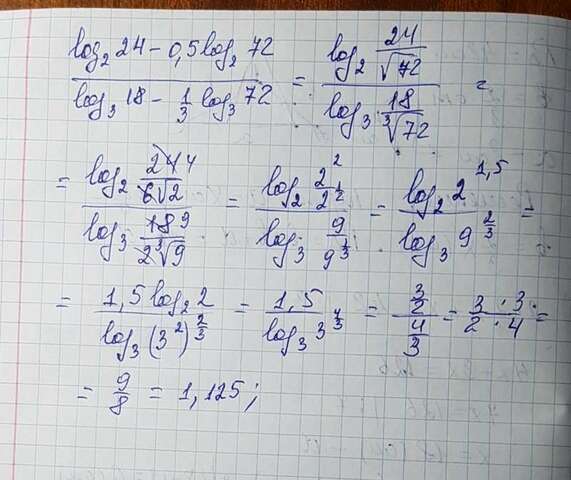 (log₂ 24 - 0,5 log₂ 72) / (log₃ 18 - 1/3 log₃ 72) = (log₂ 24/√72) / (log₃ 18/∛72) =
= (log₂ 24 4/6√2) / (log₃ 18 9/2∛9) = (log₂ 2²/2^(1/2)) / (log₃ 9/9^(1/3)) = (log₂ 2^(1,5)) / (log₃ 9^(2/3)) =
= (1,5 log₂ 2) / (log₃ (3²)^(2/3)) = 1,5 / (log₃ 3^(4/3)) = (3/2) / (4/3) = (3 · 3) / (2 · 4) =
= 9/8 = 1,125;